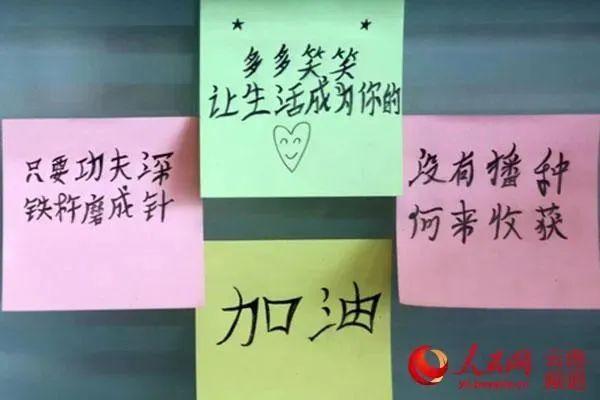 多多笑笑
让生活成为你的
只要功夫深
铁杵磨成针
没有播种
何来收获
加油
人民网
云南
频道